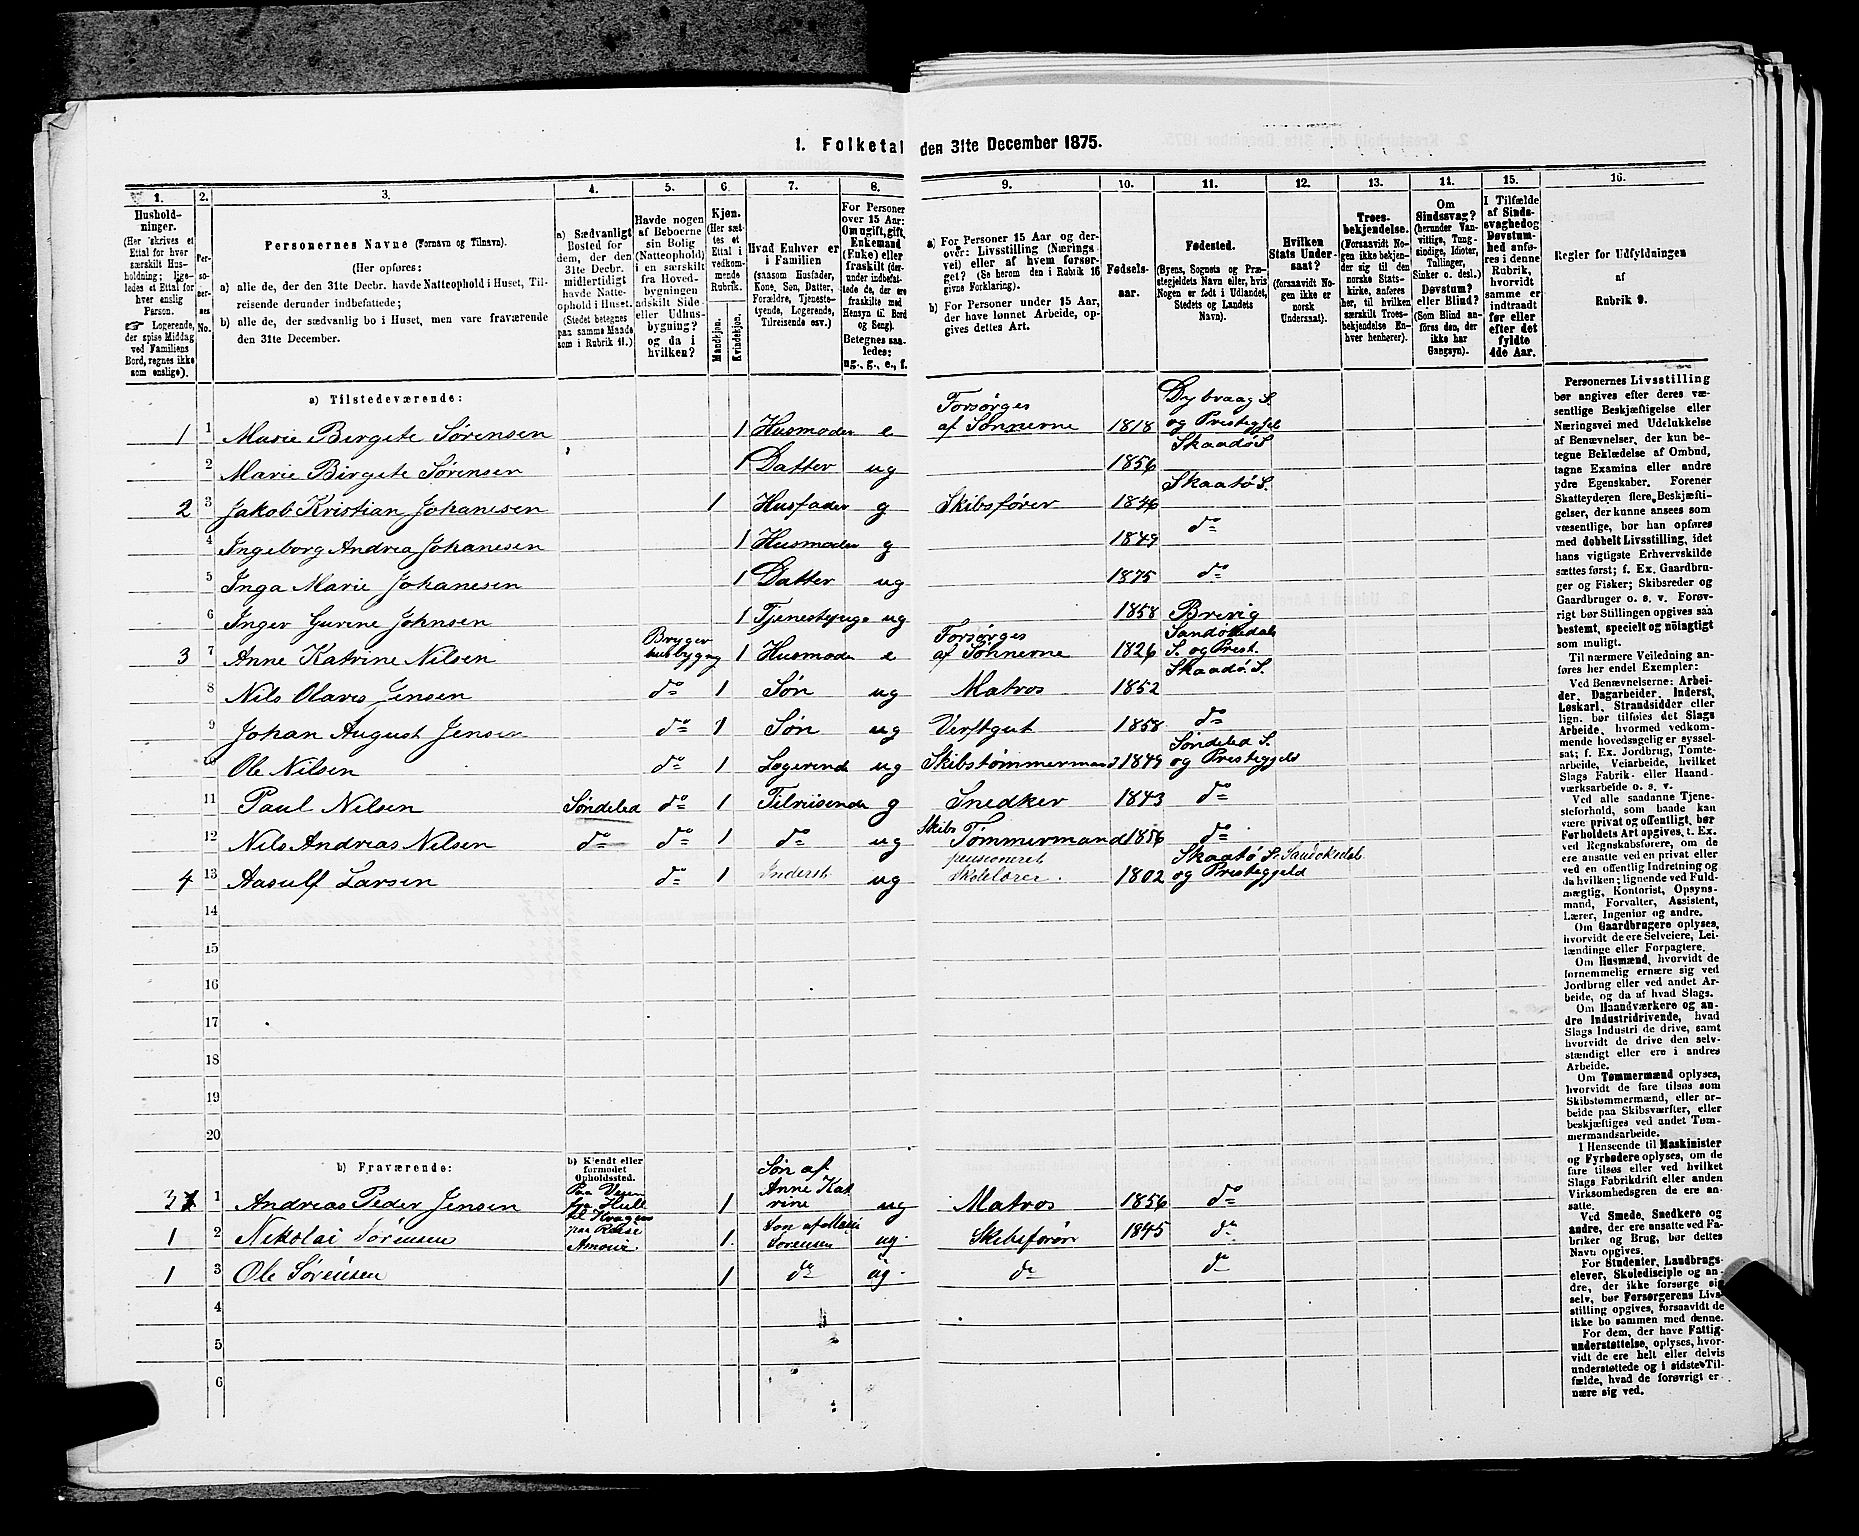 1. Folketal den 31te December 1875.
1. 2. 3. 4. 5. 6. 7. 8. 9. 10. 11. 12. 13. 14. 15. 16.
Hushold-
ninger.
(Her skrives et
Ettal for hver
særskilt Hus-
holdning; lige-
ledes et Ettal for
hver enslig
Person.
☞ Logerende,
der spise Middag
ved Familiens
Bord, regnes ikke
som enslige).
Per-
so-
ner-
nes
No.
Personernes Navne (Fornavn og Tilnavn).
(Her opføres:
a) alle de, der den 31te Decbr. havde Natteophold i Huset, Til-
reisende derunder indbefattede;
b) alle de, der sædvanlig bo i Huset, men vare fraværende
den 31te December.
a) Sædvanligt
Bosted for
dem, der den
31te Decbr.
midlertidigt
havde Natte-
ophold i Huset.
(Stedet betegnes
paa samme Maade
som i Rubrik 11.)
Havde nogen
af Beboerne
sin Bolig
(Natteophold)
i en særskilt
fra Hoved-
bygningen
adskilt Side-
eller Udhus-
bygning?
og da i
hvilken?
Kjøn.
(Her sæt-
tes et
Ettal i
vedkom-
mende
Rubrik.
Mandkjøn.
Kvindekjøn.
Hvad Enhver er
i Familien
(saasom Husfader,
Kone, Søn, Datter,
Forældre, Tjeneste-
tyende, Logerende,
Tilreisende osv.)
For Personer
over 15 Aar:
Om ugift, gift,
Enkemand
(Enke) eller
fraskilt (der-
under indbefat-
tede de, der ere
fraskilte med
Hensyn til Bord
og Seng).
Betegnes saa-
ledes:
ug., g., e., f.
a) For Personer 15 Aar og der-
over: Livsstilling (Nærings-
vei) eller af hvem forsør-
get? (Se herom den i Rubrik 16
givne Forklaring).
b) For Personer under 15 Aar,
der have lønnet Arbeide, op-
gives dettes Art.
Fødsels-
aar.
Fødested.
(Byens, Sognets og Præ-
stegjeldets Navn eller, hvis
Nogen er født i Udlandet,
Stedets og Landets
Navn).
Hvilken
Stats Under-
saat?
(forsaavidt No-
gen ikke er
norsk
Undersaat).
Troes-
bekjendelse.
(Forsaavidt No-
gen ikke bekjen-
der sig til den
norske Stats-
kirke, anføres
her, til hvilken
særskilt Troes-
bekjendelse En-
hver henhører).
Om
Sindssvag?
(herunder Van-
vittige, Tung-
sindige, Idioter,
Tullinger,
Sinker o. desl.)
Døvstum?
eller Blind?
(Som Blind an-
føres den, der
ikke har
Gangsyn).
I Tilfælde
af Sinds-
svaghed og
Døvstum-
hed anfø-
res i denne
Rubrik,
hvorvidt
samme er
indtraadt
før eller
efter det
fyldte
4de Aar.
Regler for Udfyldningen
af
Rubrik 9.
a) Tilstedeværende:
1 1 Marie Birgete Sørensen 1 Husmoder e Forsørges af Sønnerne 1818 Dybvaag S. og Prestegjeld
2 Marie Birgete Sørensen 1 Datter ug 1856 Skaadø S.
2 3 Jakob Kristian Johanesen 1 Husfader g Skibsfører 1846 Skaatø S.
4 Ingeborg Andrea Johanesen 1 Husmoder g 1849 do
5 Inga Marie Johanesen 1 Datter ug 1875 do
6 Inger Gurine Johnsen 1 ug 1858 Brevig
3 7 Anne Katrine Nilsen Brygerhusbygng 1 Husmoder e Forsørges af Sønnerne 1826 Sandøkedals S. og Prest.
8 Nils Olaves Jensen do 1 Søn ug Matros 1852 Skaadø S.
9 Johan August Jensen do 1 Søn ug Verftgut 1858 do
Ole Nilsen do 1 Logerende ug Skibstømmermand 1849 Søndeled S. og Prestegjeld
11 Paul Nilsen Søndeled do 1 Tilreisende g Snedker 1843 do
12 Nils Andreas Nilsen do do 1 do ug Skibs Tømmermand 1856 do
4 13 Aasulf Larsen do 1 Inderst ug pensioneret Skolelærer. 1802 Skaatø S. Sandøkedal og Prestegjeld
14
15
16
17
18
19
20
b) Fraværende:
b) Kjendt eller
formodet
Opholdssted.
3 1 Andreas Peder Jensen Paa Veien fra Hull til Kragerø 1 Søn af Anne Katrine ug Matros 1856 do
1 2 Nikolai Sørensen paa Reise 1 Søn af Marie Sørensen ug. Skibsfører 1845 do
1 3 Ole Sørensen 1 do ug. do do
4
5
6
Personernes Livsstilling
bør angives efter deres væ-
sentlige Beskjæftigelse eller
Næringsvei med Udelukkelse
af Benævnelser, der kun be-
tegne Beklædelse af Ombud,
tagne Examina eller andre
ydre Egenskaber. Forener
Skatteyderen flere Beskjæfti-
gelser, der kunne ansees som
væsentlige, bør han opføres
med dobbelt Livsstilling, idet
hans vigtigste Erhvervskilde
sættes først; f. Ex. Gaardbru-
ger og Fisker; Skibsreder og
Gaardbruger o. s. v. Forøv-
rigt bør Stillingen opgives saa
bestemt, specielt og nöiagtigt
som muligt.
Til nærmere Veiledning an-
føres her endel Exempler:
Ved Benævnelserne: Arbei-
der, Dagarbeider, Inderst,
Løskarl, Strandsidder eller
lign. bør tilføies det Slags
Arbeide, hvormed vedkom-
mende hovedsagelig er syssel-
sat; f. Ex. Jordbrug, Tomte-
arbeide, Veiarbeide, hvilket
Slags Fabrik- eller Haand-
værksarbeide o. s. v.
Ved alle saadanne Tjene-
steforhold, som baade kan
være privat og offentligt, bør
Forholdets Art opgives, t. Ex.
ved Regnskabsførere, om de
ere ansatte ved en privat eller
ved en offentlig Indretning og
da hvilken; lignende ved Fuld-
mægtig, Kontorist, Opsyns-
mand, Forvalter, Assistent,
Lærer, Ingeniør og andre.
Om Gaardbrugere oplyses,
hvorvidt de ere Selveiere, Lei-
lændinge eller Forpagtere.
Om Husmænd, hvorvidt de
fornemmelig ernære sig ved
Jordbrug eller ved andet Ar-
beide, og da af hvad Slags.
Om Haandværkere og an-
dre Industridrivende, hvad
Slags Industri de drive, samt
hvorvidt de drive den selv-
stændigt eller ere i andres
Arbeide.
Om Tømmermænd oplyses,
hvorvidt de fare tilsøs som
Skibstømmermænd, eller ar-
beide paa Skibsværfter, eller
beskjæftiges ved andet Tøm-
mermandsarbeide.
I Henseende til Maskinister
og Fyrbødere oplyses, om de
fare tilsøs eller ved hvilket
Slags Fabrikdrift eller anden
Virksomhedsgren de ere an-
satte.
Ved Smede, Snedkere og
andre, der ere ansatte ved Fa-
briker og Brug, bør dettes
Navn opgives.
For Studenter, Landbrugs-
elever, Skoledisciple og an-
dre, der ikke forsørge sig
selv, bør Forsørgerens Livs-
stilling opgives, forsaavidt de
ikke bo sammen med denne.
For dem, der have Fattig-
understøttelse, oplyses, hvor-
vidt de ere helt eller delvis
understøttede og i sidste Til-
fælde, hvad de forøvrigt er-
nære sig ved.